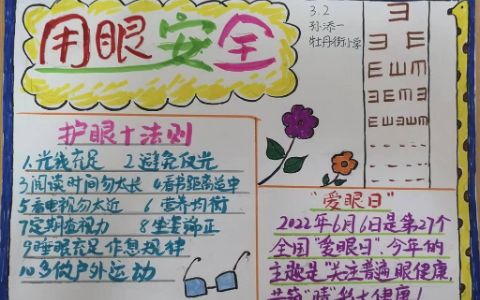 用眼安全
3.2
孙添一
牡丹街小学
护眼十法则
1.光线充足 2避免反光
3阅读时间勿太长 4看书距离适中
5看电视勿太近 6营养均衡
7定期查视力 8坐姿端正
9睡眠充足作息规律
10多做户外运动
E
E E
E E M
E M E
E E W M E
"爱眼日"
2022年6月6日是第27个
全国"爱眼日"今年的
主题是"关注普遍眼健康,
共筑"睛"彩大健康!